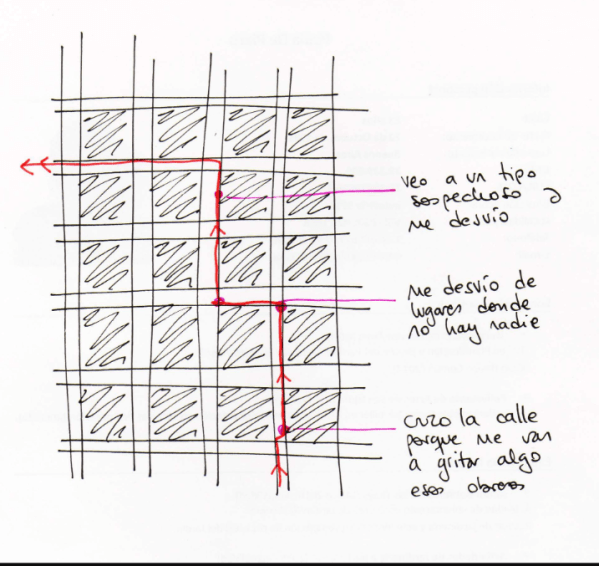 veo a un tipo
sospechoso
me desvío
me desvío de
lugares donde
no hay nadie
cruzo la calle
porque me van
a gritar algo
esos obreros